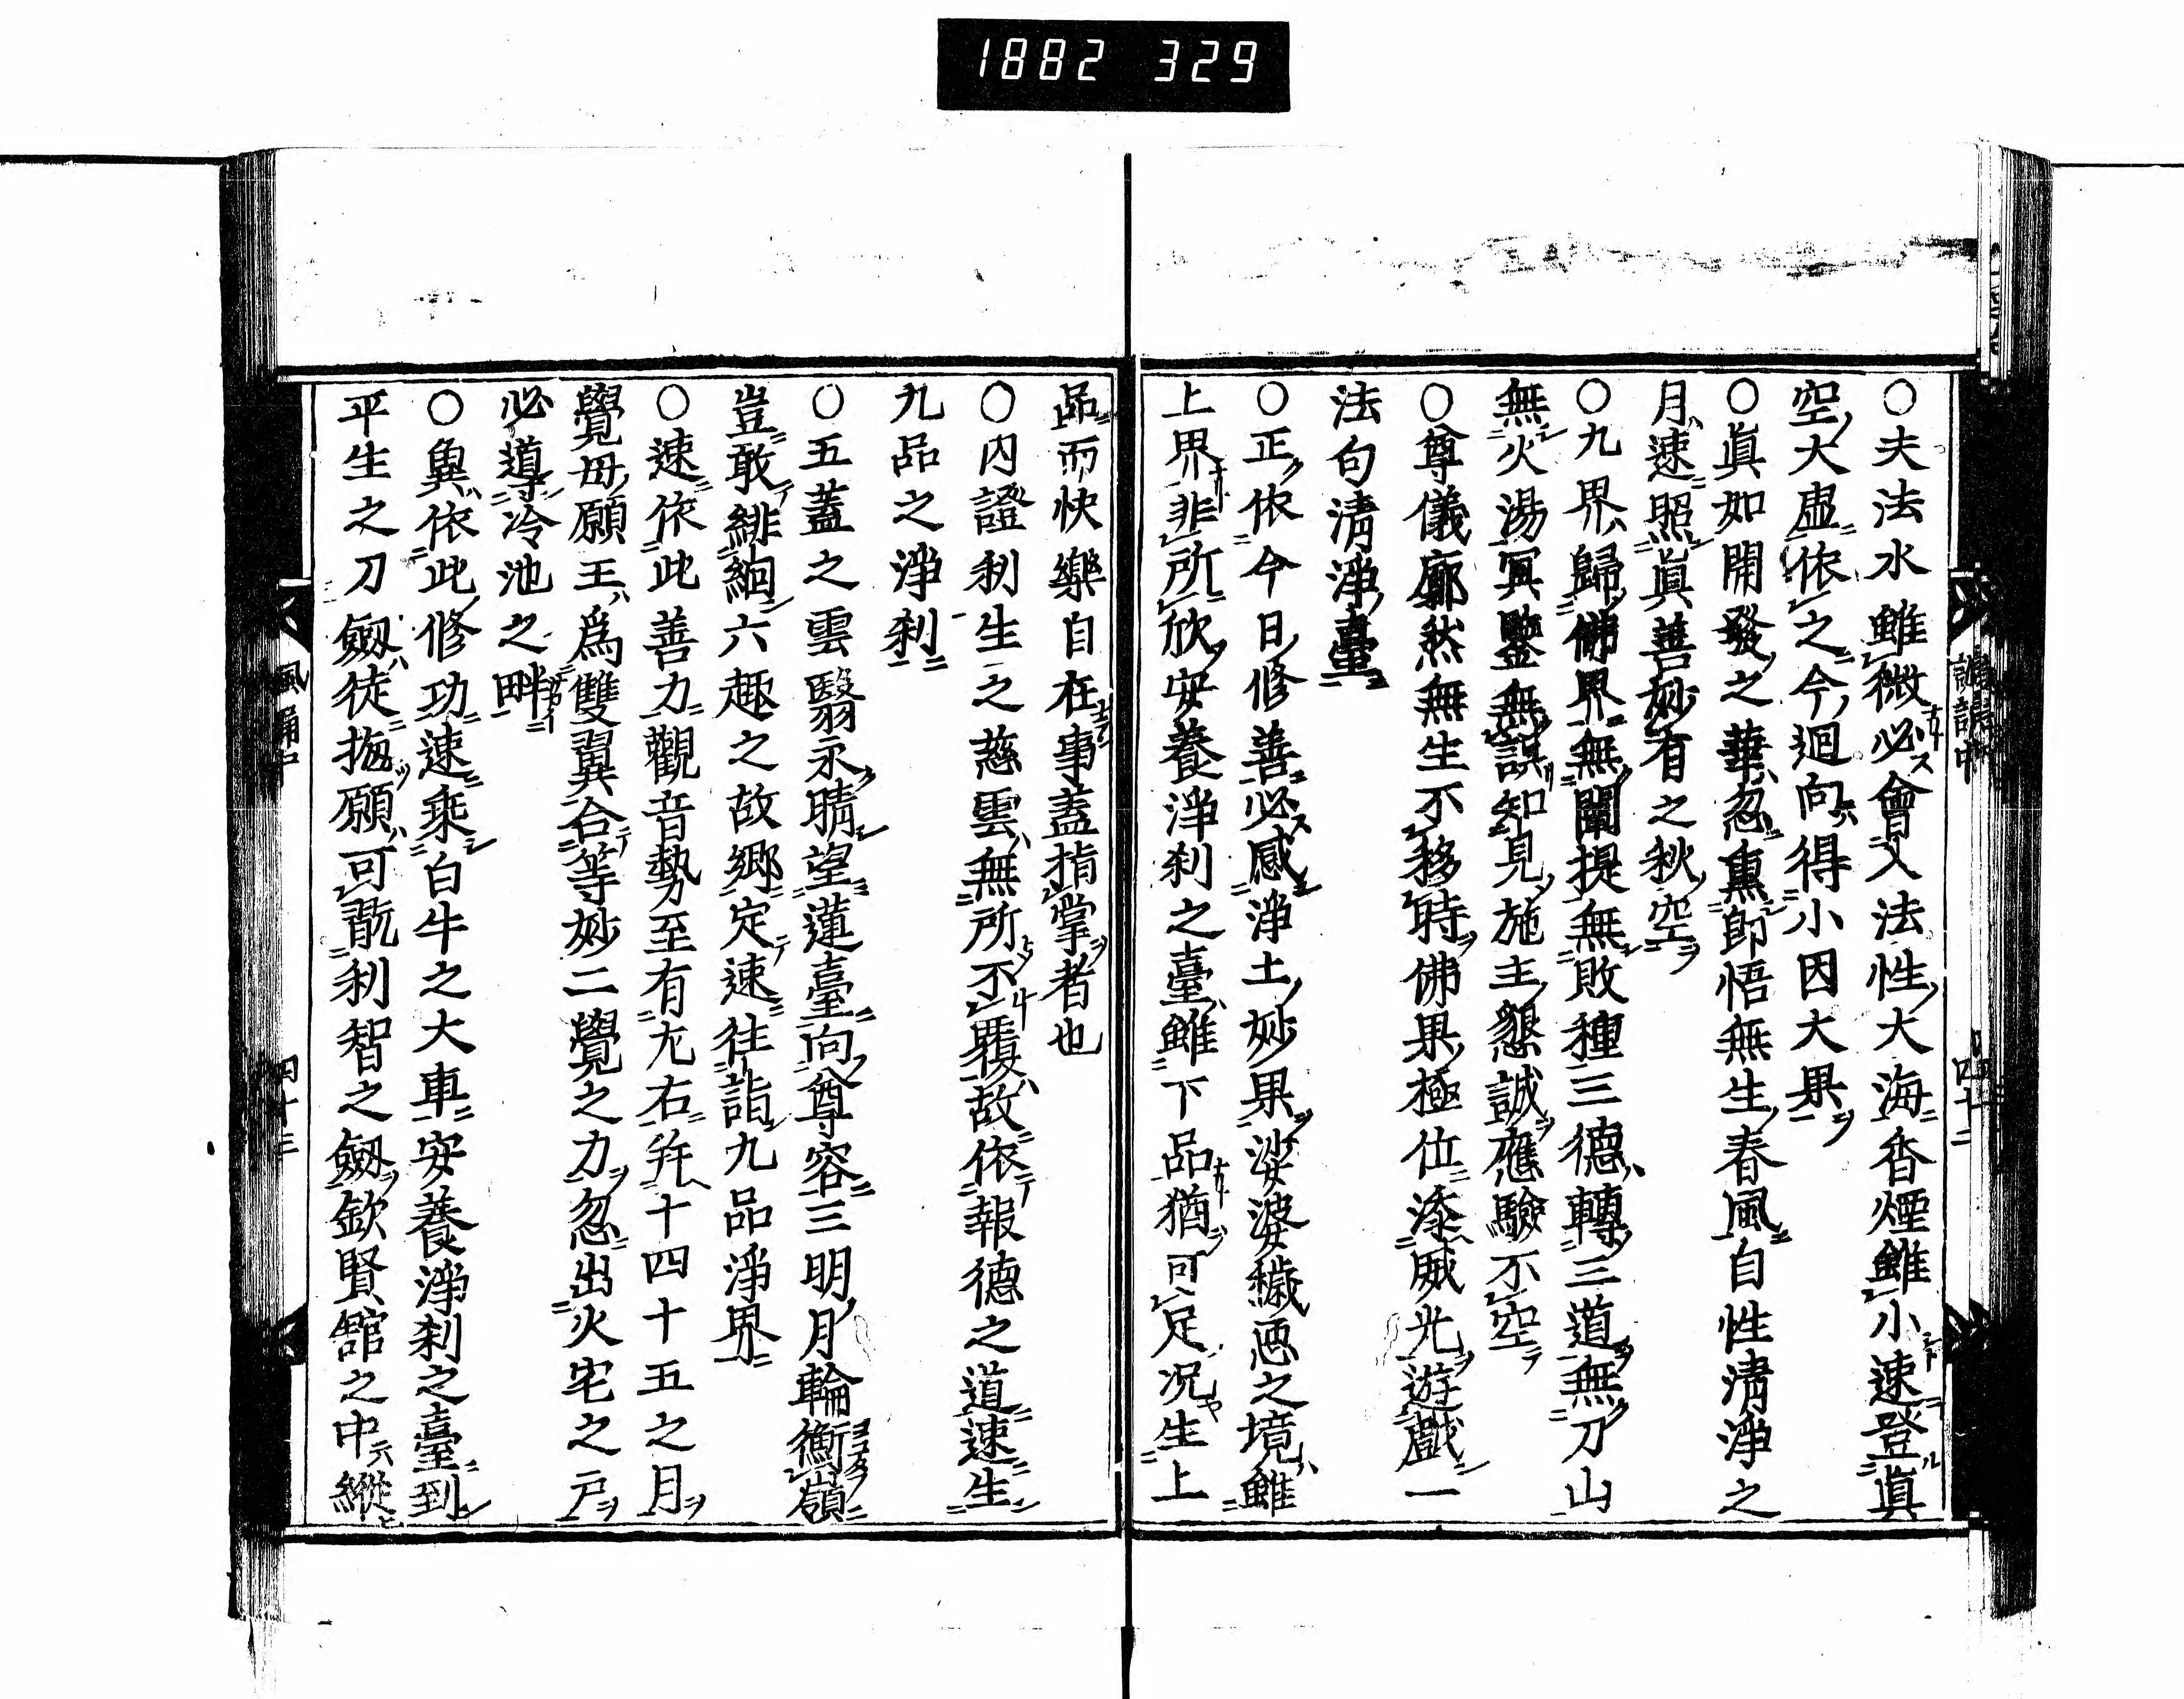 1882 329
○夫法水雖微必會入法性大海香煙雖小速登眞
空大虛依之今廻向得小因大果
○眞如開發之華忽薰即悟無生春風自性淸淨之
月速照眞善妙有之秋空
○九界歸佛界無闡提無敗種三德轉三道無刀山
無火湯冥鑒無誤知見施主懇誠應驗不空
○尊儀廓然無生不移時佛果極位添威光遊戲一
法句淸淨臺
○正依今日修善必感淨土妙果娑婆穢惡之境雖
上界非所欣安養淨刹之臺雖下品猶可足况生上
品而快樂自在事蓋指掌者也
○内證利生之慈雲無所不覆故依報德之道速生
九品之淨刹
○五蓋之雲翳永晴望蓮臺向尊容三明月輪衡嶺
豈敢緋絢六趣之故鄉定速往詣九品淨界
○速依此善力觀音勢至有尢右并十四十五之月
覺母願王爲雙翼合等妙二覺之力忽出火宅之戸
必導冷池之畔
○冀依此修功速乘白牛之大車安養淨刹之臺到
平生之刀劔徒拖願可翫利智之劔欽賢舘之中縱
諷誦中 四十二
風誦中 四十三